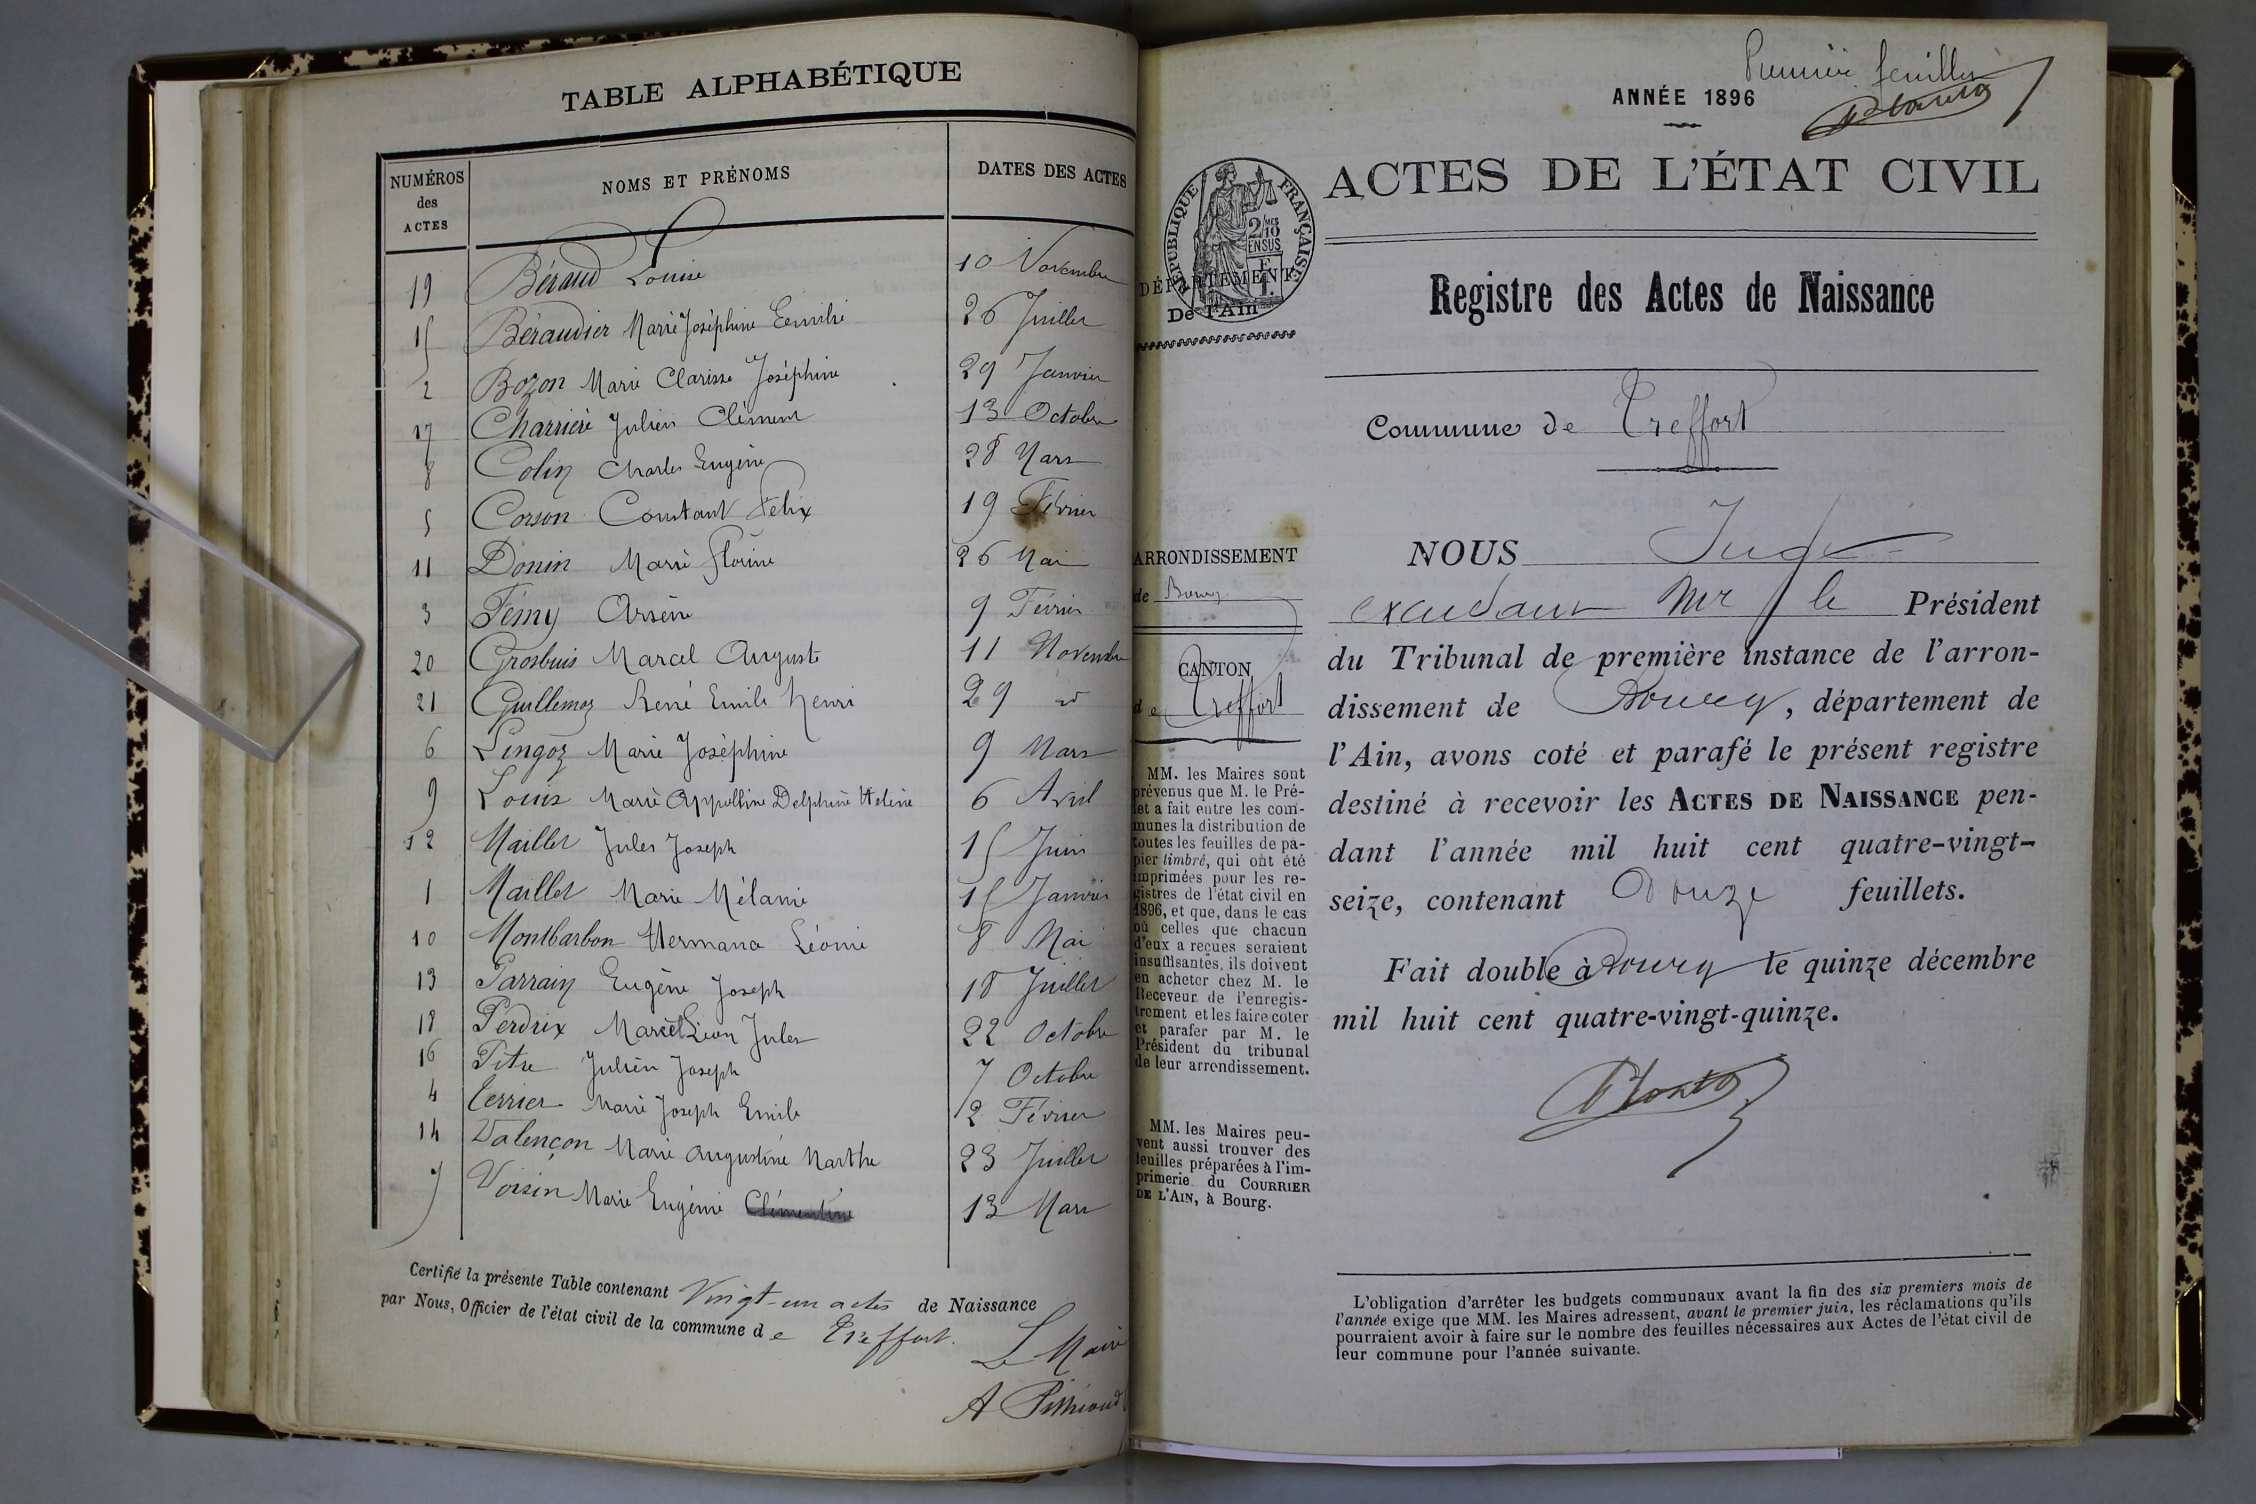 TABLE ALPHABÉTIQUE
NUMÉROS des ACTES NOMS ET PRÉNOMS DATES DES ACTES
19 Béraud Louise 10 Novembre
15 Béraudier Marie Joséphine Emilie 26 Juillet
2 Bozon Marie Clarisse Joséphine 29 Janvier
17 Charrière Julien Clément 13 Octobre
8 Colin Charles Eugène 28 Mars
5 Corson Constant Félix 19 Février
11 Donin Marie Florine 26 Mai
3 Fémy Arsène 9 Février
20 Grosbuis Marcel Auguste 11 Novembre
21 Guillemoz René Emile Henri 29 id
6 Lingoz Marie Joséphine 9 Mars
9 Louis Marie Appolline Delphine Hélène 6 Avril
12 Maillet Jules Joseph 15 Juin
1 Maillet Marie Mélanie 15 Janvier
10 Montbarbon Hermana Léonie 8 Mai
13 Parrain Eugène Joseph 18 Juillet
18 Perdrix Marcel Léon Jules 22 Octobre
16 Pitre Julien Joseph 7 Octobre
4 Terrier Marie Joseph Emile 12 Février
14 Valençon Marie Augustine Marthe 23 Juillet
7 Voisin Marie Eugénie Clémentine 13 Mars
Certifié la présente Table contenant Vingt-un actes de Naissance
par Nous, Officier de l'état civil de la commune de Treffort.
Le Maire
Première feuille
ANNÉE 1896
ACTES DE L'ÉTAT CIVIL
RÉPUBLIQUE FRANÇAISE
2/10 EN SUS
DÉPARTEMENT
De l'Ain
Registre des Actes de Naissance
Commune de Treffort
ARRONDISSEMENT
de Bourg
CANTON
de Treffort
MM. les Maires sont
prévenus que M. le Pré-
fet a fait entre les com-
munes la distribution de
toutes les feuilles de pa-
pier timbré, qui ont été
imprimées pour les re-
gistres de l'état civil en
1896, et que, dans le cas
où celles que chacun
d'eux a reçues seraient
insuffisantes, ils doivent
en acheter chez M. le
Receveur de l'enregis-
trement et les faire coter
et parafer par M. le
Président du tribunal
de leur arrondissement.
MM. les Maires peu-
vent aussi trouver des
feuilles préparées à l'im-
primerie du COURRIER
DE L'AIN, à Bourg.
NOUS Juge
Mr le Président
du Tribunal de première instance de l'arron-
dissement de Bourg, département de
l'Ain, avons coté et parafé le présent registre
destiné à recevoir les ACTES DE NAISSANCE pen-
dant l'année mil huit cent quatre-vingt-
seize, contenant Douze feuillets.
Fait double à Bourg le quinze décembre
mil huit cent quatre-vingt-quinze.
L'obligation d'arrêter les budgets communaux avant la fin des six premiers mois de
l'année exige que MM. les Maires adressent, avant le premier juin, les réclamations qu'ils
pourraient avoir à faire sur le nombre des feuilles nécessaires aux Actes de l'état civil de
leur commune pour l'année suivante.